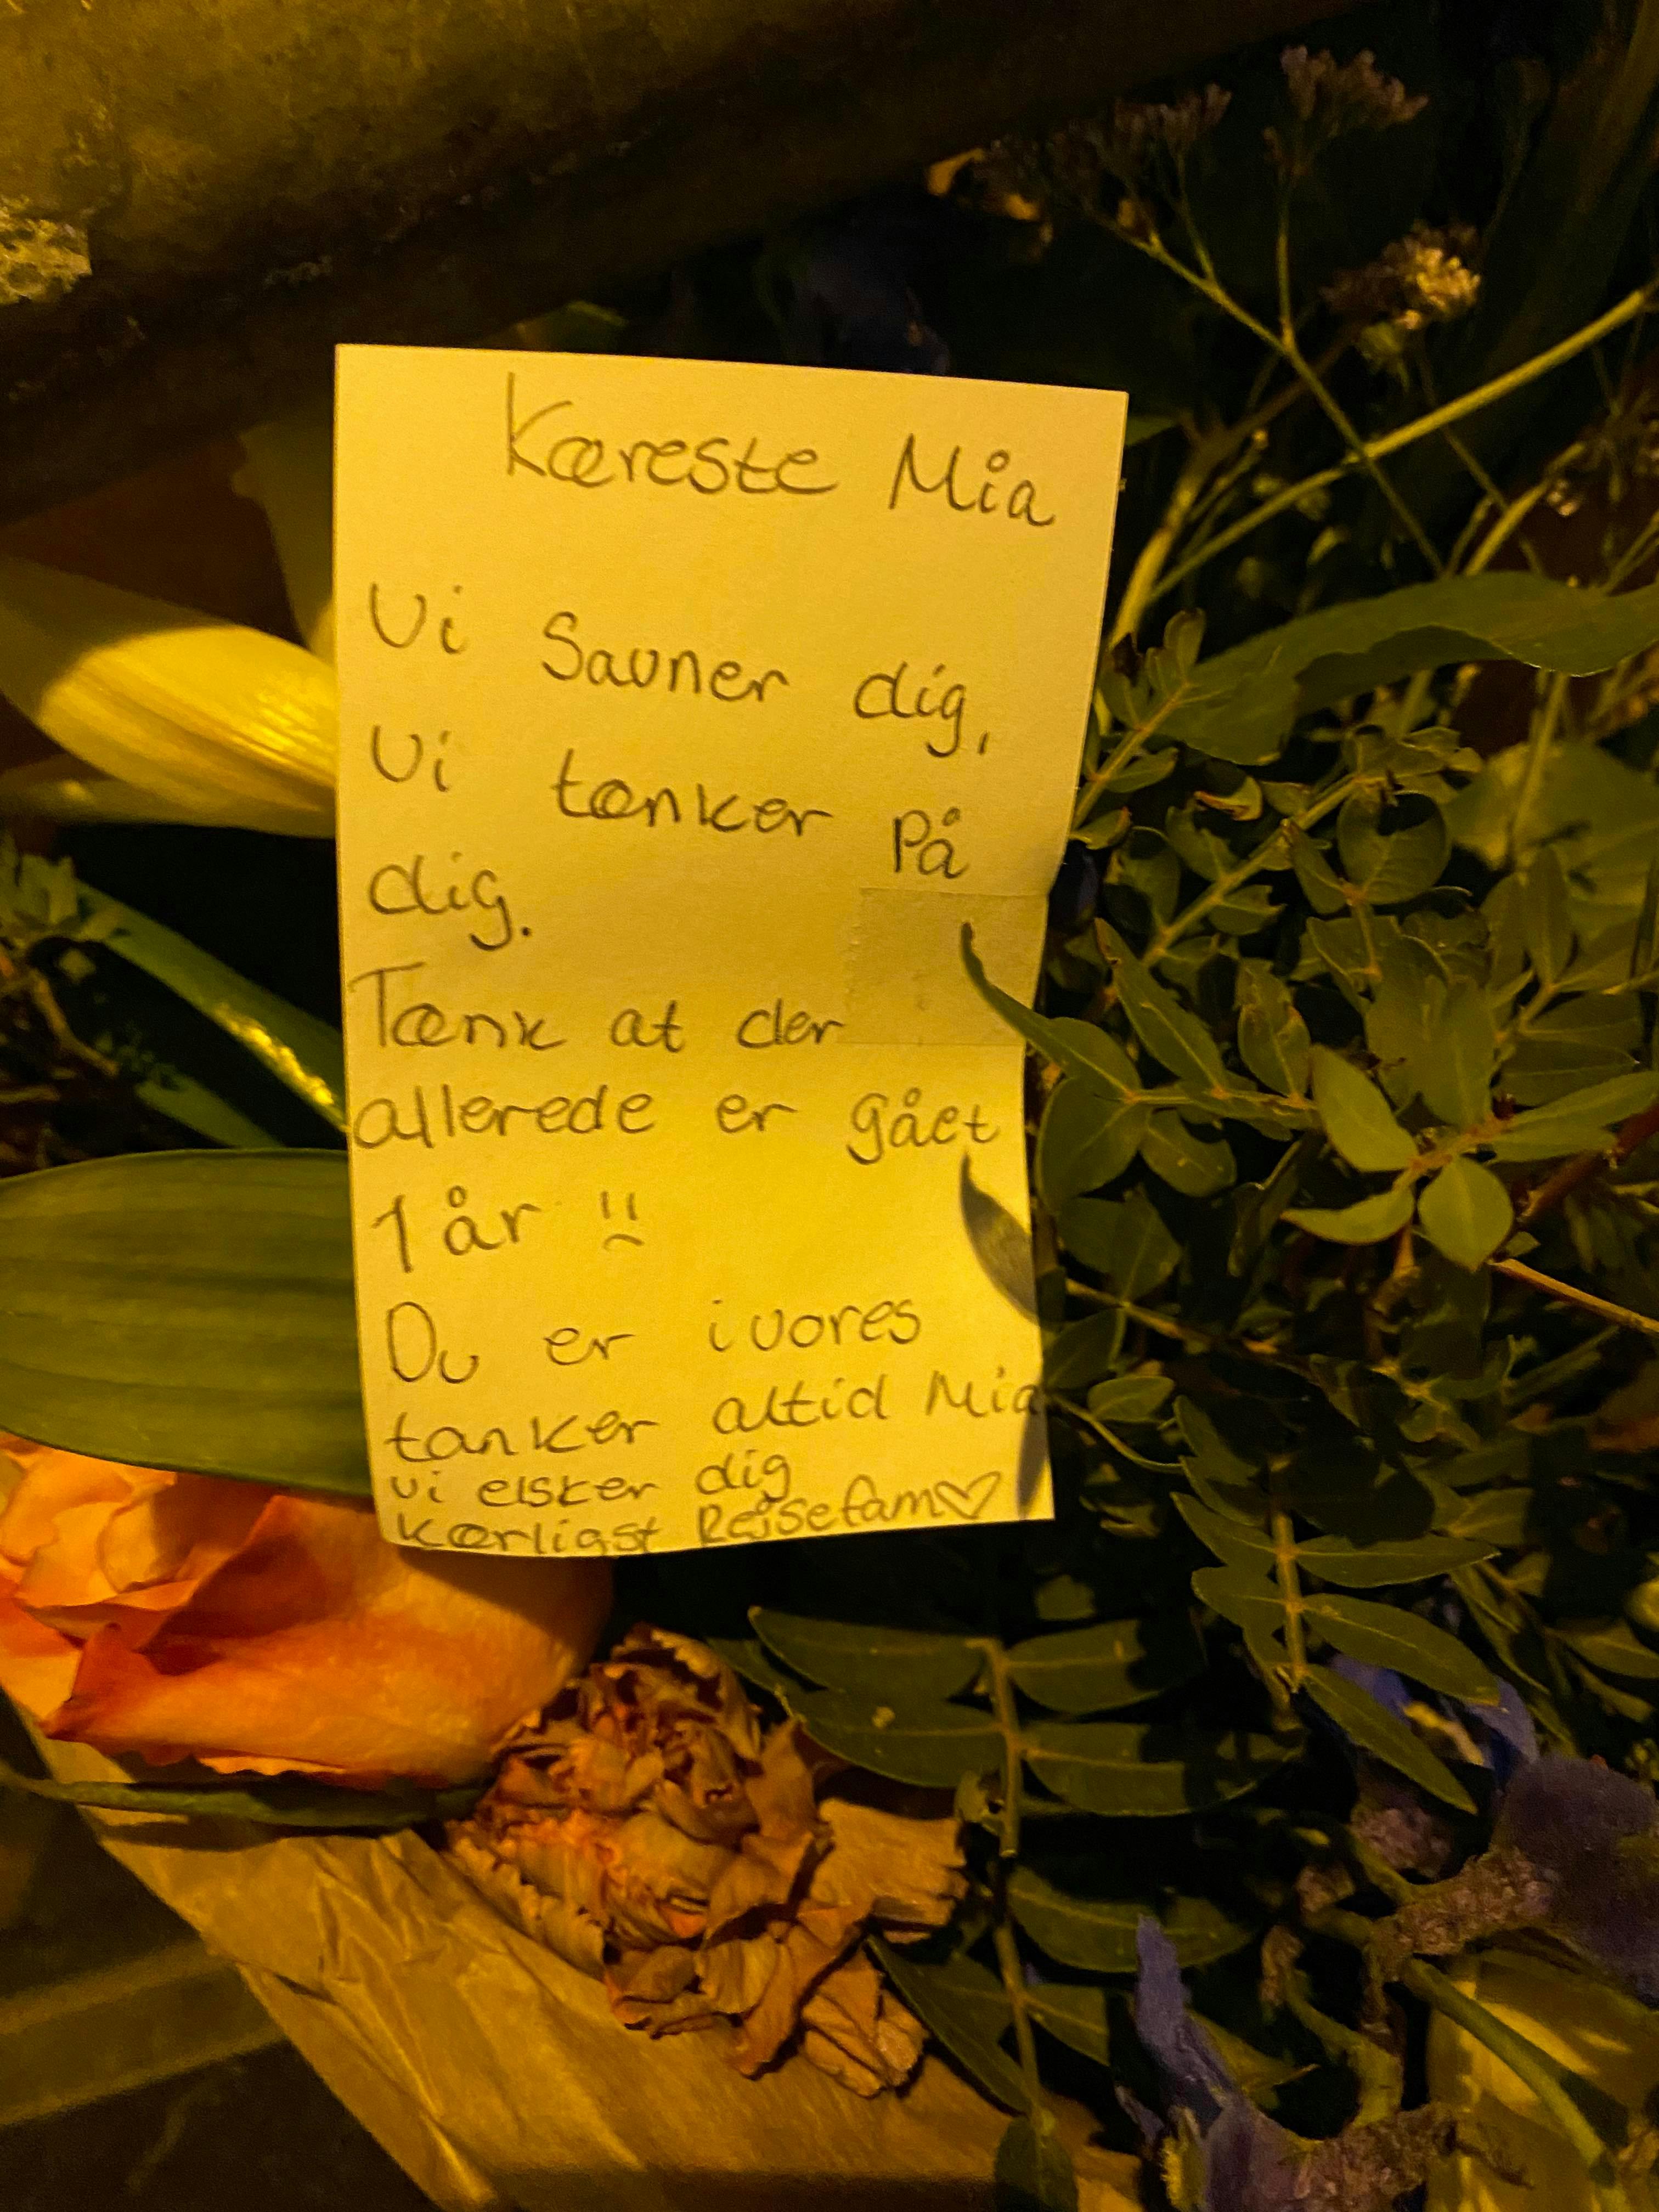 Kæreste Mia
Vi Savner dig,
Vi tænker På
dig.
Tænk at der
allerede er gået
1 år !!
Du er i vores
tanker altid Mia
vi elsker dig
Kærligst Rejsefam♡